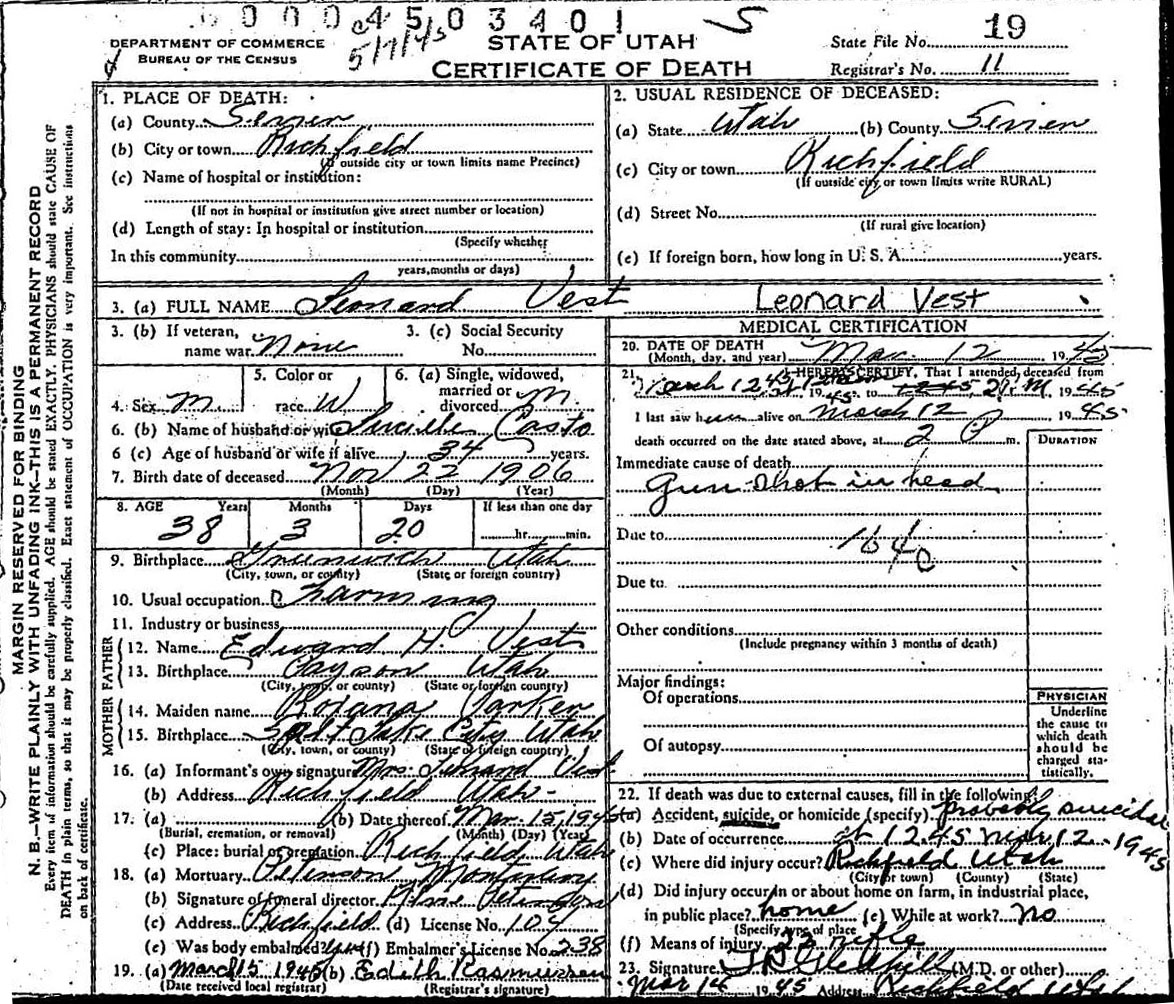 0 0 0 4 5 0 3 4 0 1 S
5/7/45
DEPARTMENT OF COMMERCE
BUREAU OF THE CENSUS
STATE OF UTAH
CERTIFICATE OF DEATH
State File No. 19
Registrar's No. 11
MARGIN RESERVED FOR BINDING
N. B.—WRITE PLAINLY WITH UNFADING INK—THIS IS A PERMANENT RECORD
Every item of information should be carefully supplied. AGE should be stated EXACTLY. PHYSICIANS should state CAUSE OF
DEATH in plain terms, so that it may be properly classified. Exact statement of OCCUPATION is very important. See instructions
on back of certificate.
1. PLACE OF DEATH:
(a) County Sevier
(b) City or town Richfield
(If outside city or town limits name Precinct)
(c) Name of hospital or institution:
(If not in hospital or institution give street number or location)
(d) Length of stay: In hospital or institution
(Specify whether
In this community
years, months or days)
2. USUAL RESIDENCE OF DECEASED:
(a) State Utah (b) County Sevier
(c) City or town Richfield
(If outside city or town limits write RURAL)
(d) Street No.
(If rural give location)
(e) If foreign born, how long in U. S. A. years.
3. (a) FULL NAME Leonard Vest Leonard Vest
3. (b) If veteran,
name war None
3. (c) Social Security
No.
4. Sex M
5. Color or
race W
6. (a) Single, widowed,
married or
divorced M
6. (b) Name of husband or wife Lucille Casto
6 (c) Age of husband or wife if alive 34 years.
7. Birth date of deceased Nov 22 1906
(Month) (Day) (Year)
8. AGE Years Months Days If less than one day
38 3 20 hr. min.
9. Birthplace Greenwich Utah
(City, town, or county) (State or foreign country)
10. Usual occupation Farming
11. Industry or business
FATHER
12. Name Edward H. Vest
13. Birthplace Payson Utah
(City, town, or county) (State or foreign country)
MOTHER
14. Maiden name Rozana Parker
15. Birthplace Salt Lake City Utah
(City, town, or county) (State or foreign country)
16. (a) Informant's own signature Mrs. Leonard Vest
(b) Address Richfield Utah
17. (a) (b) Date thereof Mar. 15, 1945
(Burial, cremation, or removal) (Month) (Day) (Year)
(c) Place: burial or cremation Richfield, Utah
18. (a) Mortuary Peterson Mortuary
(b) Signature of funeral director
(c) Address Richfield (d) License No. 104
(e) Was body embalmed? yes (f) Embalmer's License No. 238
19. (a) March 15 1945 (b) Edith Rasmussen
(Date received local registrar) (Registrar's signature)
MEDICAL CERTIFICATION
20. DATE OF DEATH
(Month, day, and year) Mar. 12 1945
21. I HEREBY CERTIFY, That I attended deceased from
March 12 1945 to 2 P.M. 1945
I last saw him alive on March 12 1945
death occurred on the date stated above, at 2 P m.
DURATION
Immediate cause of death
Gun shot in head
Due to 164c
Due to
Other conditions
(Include pregnancy within 3 months of death)
Major findings:
Of operations
Of autopsy
PHYSICIAN
Underline
the cause to
which death
should be
charged sta-
tistically.
22. If death was due to external causes, fill in the following:
(a) Accident, suicide, or homicide (specify) probably suicidal
(b) Date of occurrence at 12.45 Mar 12 - 1945
(c) Where did injury occur? Richfield Utah
(City or town) (County) (State)
(d) Did injury occur in or about home on farm, in industrial place,
in public place? home (e) While at work? no
(Specify type of place
(f) Means of injury 22 rifle
23. Signature (M.D. or other)
Mar 14 1945 Address Richfield Utah